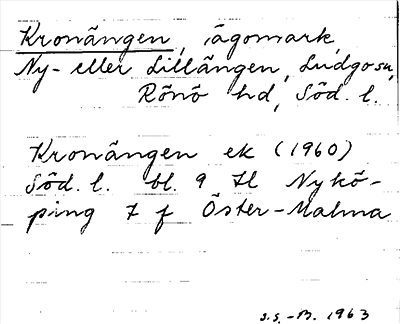 Kronängen, ägomark,
Ny- eller Lillängen, Ludgo sn,
Rönö hd, Söd. l.
Kronängen ek (1960)
Söd. l. bl. 9 H Nykö-
ping 7 f Öster-Malma
S.S.-B. 1963